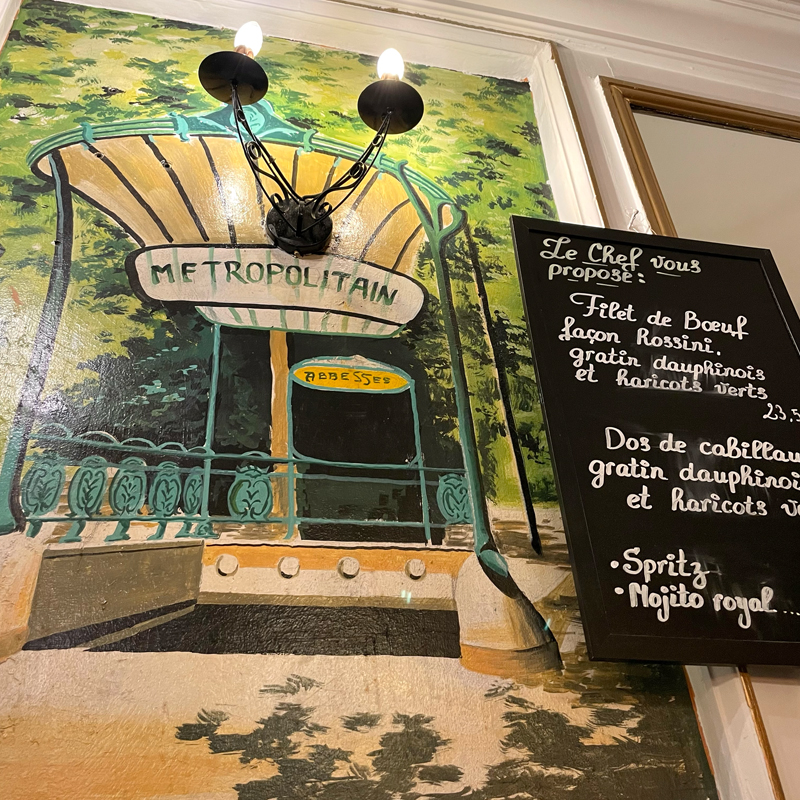 METROPOLITAIN
ABBESSES
Le Chef vous
propose:
Filet de Bœuf
façon Rossini,
gratin dauphinois
et haricots verts
Dos de
gratin
et haricots
•Spritz
•Mojito royal...